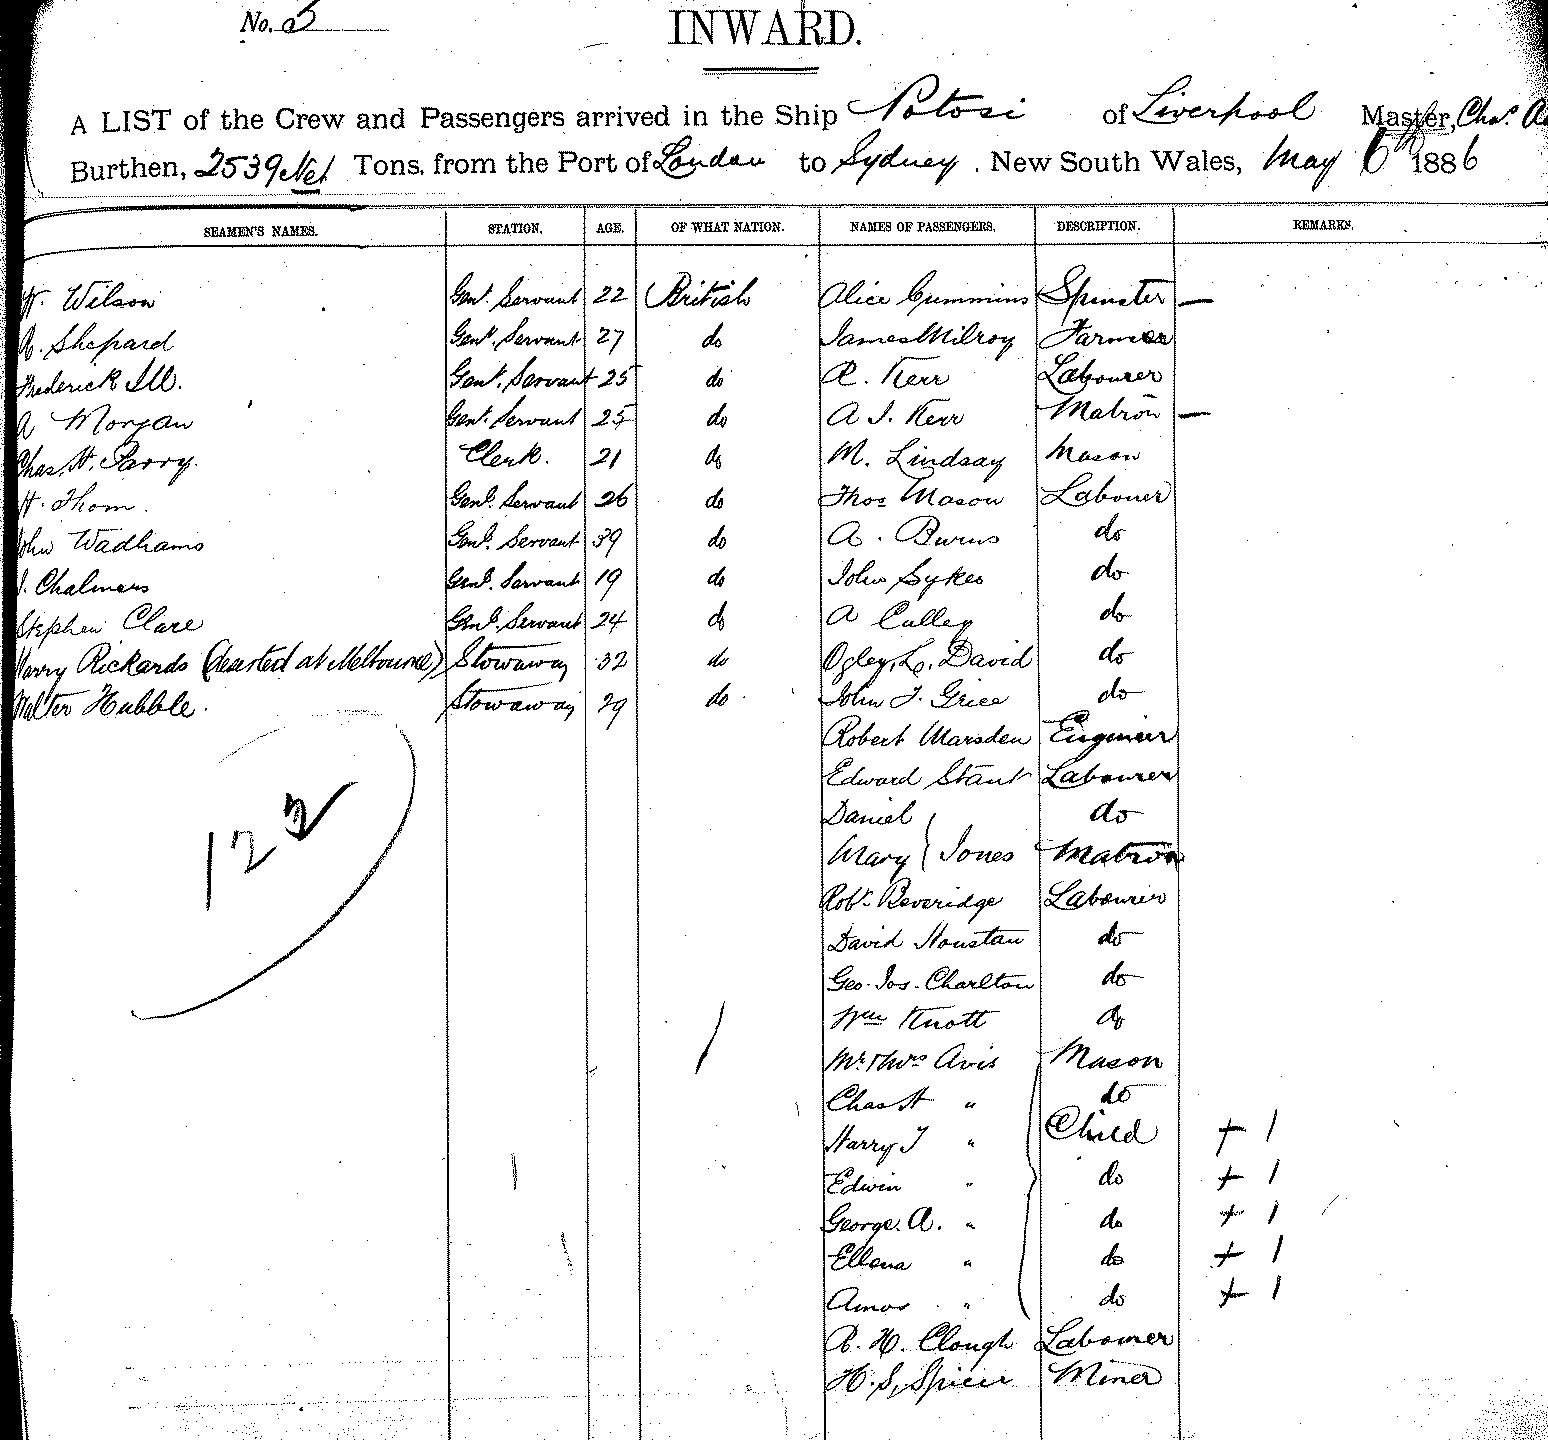 No. 5
INWARD.
A LIST of the Crew and Passengers arrived in the Ship Potosi of Liverpool Master, Chas.
Burthen, 2539 Net Tons, from the Port of London to Sydney, New South Wales, May 6th 1886
SEAMEN'S NAMES. STATION. AGE. OF WHAT NATION. NAMES OF PASSENGERS. DESCRIPTION. REMARKS.
H. Wilson Genl. Servant 22 British Alice Cummins Spinster —
A. Shepard Genl. Servant 27 do James Milroy Farmer
Frederick Ill. Genl. Servant 25 do R. Kerr Labourer
A Morgan Genl. Servant 25 do A J. Kerr Matron —
Chas. H. Parry. Clerk. 21 do M. Lindsay Mason
H. Thom. Genl. Servant 26 do Thos Mason Labouer
John Wadhams Genl. Servant 39 do A. Burns do
J. Chalmers Genl. Servant 19 do John Sykes do
Stephen Clare Genl. Servant 24 do A Culley do
Harry Rickards (deserted at Melbourne) Stowaway 32 do Ogley, L. David do
Walter Hubble. Stowaway 29 do John T. Grice do
Robert Marsden Engineer
Edward Stant Labourer
Daniel do
Mary } Jones Matron
122
Robt. Beveridge Labourer
David Houstan do
Geo. Jos. Charlton do
Wm Knott do
Mr & Mrs Avis Mason
Chas H " do
Harry J " Child + 1
Edwin " do + 1
George. A. " do + 1
Ellena " do + 1
Amos " do + 1
R. H. Clough Labourer
H. S. Spicer Miner